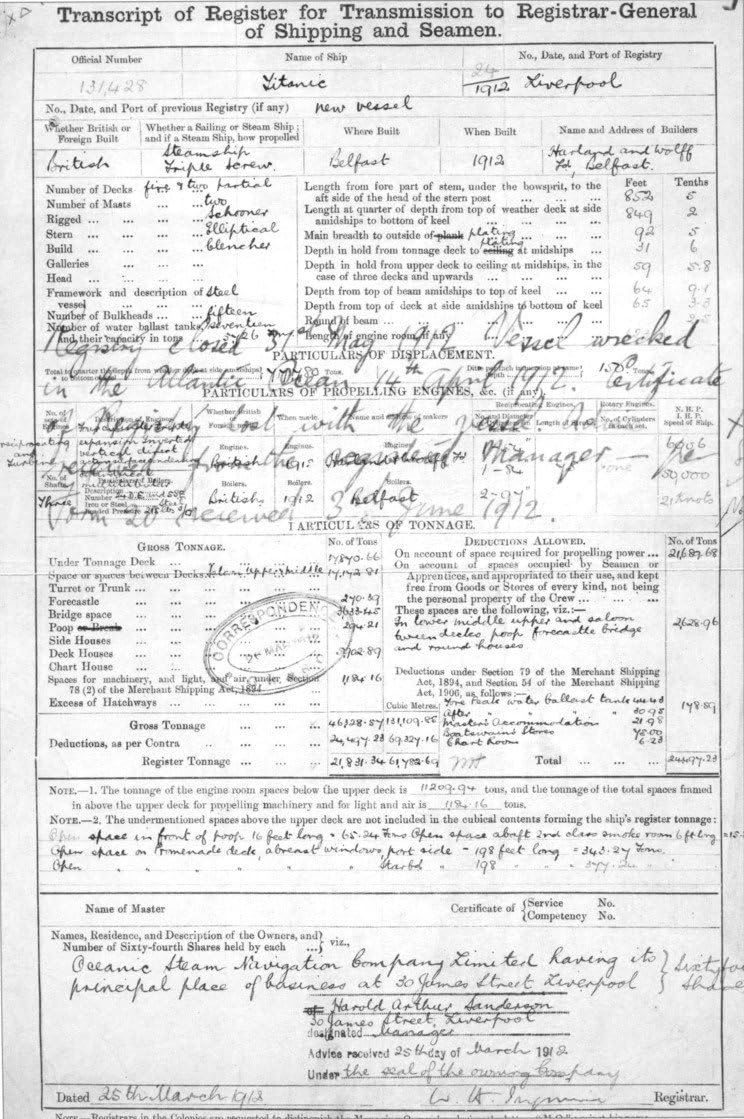 Transcript of Register for Transmission to Registrar-General
of Shipping and Seamen.
Official Number
Name of Ship
No., Date, and Port of Registry
131,428
Titanic
24/1912 Liverpool
No., Date, and Port of previous Registry (if any) new vessel
Whether British or Foreign Built
Whether a Sailing or Steam Ship; and if a Steam Ship, how propelled
Where Built
When Built
Name and Address of Builders
British
Steamship Triple Screw
Belfast
1912
Harland and Wolff Ld, Belfast.
Number of Decks five & two partial
Number of Masts ... two
Rigged ... Schooner
Stern ... Elliptical
Build ... Clencher
Galleries ...
Head ...
Framework and description of vessel steel
Number of Bulkheads ... fifteen
Number of water ballast tanks, seventeen
and their capacity in tons
Feet Tenths
Length from fore part of stem, under the bowsprit, to the
aft side of the head of the stern post ... 852 5
Length at quarter of depth from top of weather deck at side
amidships to bottom of keel ... 849 2
Main breadth to outside of plank plating ... 92 5
Depth in hold from tonnage deck to ceiling plating at midships ... 31 6
Depth in hold from upper deck to ceiling at midships, in the
case of three decks and upwards ... 59 5.8
Depth from top of beam amidships to top of keel ... 64 9.1
Depth from top of deck at side amidships to bottom of keel 65 3.3
Round of beam ...
Length of engine room (if any) ...
Registry closed 31st May 1912 Vessel wrecked
in the Atlantic Ocean 14th April 1912. Certificate
lost with the
Manager
Form 20 received 3 June 1912.
PARTICULARS OF DISPLACEMENT.
PARTICULARS OF PROPELLING ENGINES, &c. (if any)
Whether British
When made.
Reciprocating Engines.
Rotary Engines.
No. of Cylinders in each set.
N. H. P.
I. H. P.
Speed of Ship.
Engines.
British
50,000
Boilers.
Three
British
1912
Belfast
21 Knots
PARTICULARS OF TONNAGE.
GROSS TONNAGE.
No. of Tons
Under Tonnage Deck ... 17,870.66
Space or spaces between Decks
Turret or Trunk ...
Forecastle ... 270.39
Bridge space ... 3633.45
Poop or Break ... 294.21
Side Houses ...
Deck Houses
Chart House ...
Spaces for machinery, and light, and air, under Section
78 (2) of the Merchant Shipping Act, 1894 1184.16
Excess of Hatchways ...
Cubic Metres.
Gross Tonnage ... 46,328.57 131,109.85
Deductions, as per Contra ... 24,497.23 69,327.16
Register Tonnage ... 21,831.34 61,782.69
CORRESPONDENCE
DEDUCTIONS ALLOWED.
No. of Tons
On account of space required for propelling power ... 21,689.68
On account of spaces occupied by Seamen or
Apprentices, and appropriated to their use, and kept
free from Goods or Stores of every kind, not being
the personal property of the Crew ...
These spaces are the following, viz.:—
In lower middle upper and saloon
tween decks, poop forecastle bridge
and round houses
2628.96
Deductions under Section 79 of the Merchant Shipping
Act, 1894, and Section 54 of the Merchant Shipping
Act, 1906, as follows:—
Fore Peak water ballast tank 44.43
After " " " 30.95
Master's Accommodation 21.98
Boatswain's Stores 75.00
Chart Room 6.23
178.59
Total ... 24497.23
NOTE.—1. The tonnage of the engine room spaces below the upper deck is 11209.94 tons, and the tonnage of the total spaces framed
in above the upper deck for propelling machinery and for light and air is 1184.16 tons.
NOTE.—2. The undermentioned spaces above the upper deck are not included in the cubical contents forming the ship's register tonnage:
Open space in front of poop 16 feet long = 65.24 Tons Open space abaft 2nd class smoke room 6 ft lng
Open space on Promenade deck, abreast windows, port side - 198 feet long = 343.27 Tons.
Open " " " " " Starbd " 198 " " 377.24 "
Name of Master
Certificate of Service No.
Competency No.
Names, Residence, and Description of the Owners, and
Number of Sixty-fourth Shares held by each ... viz.,
Oceanic Steam Navigation Company Limited having its
principal place of business at 30 James Street Liverpool
of Harold Arthur Sanderson
30 James Street, Liverpool
designated Manager
Advice received 25th day of March 1912
Under the seal of the owning Company
Dated 25th March 1912
Registrar.